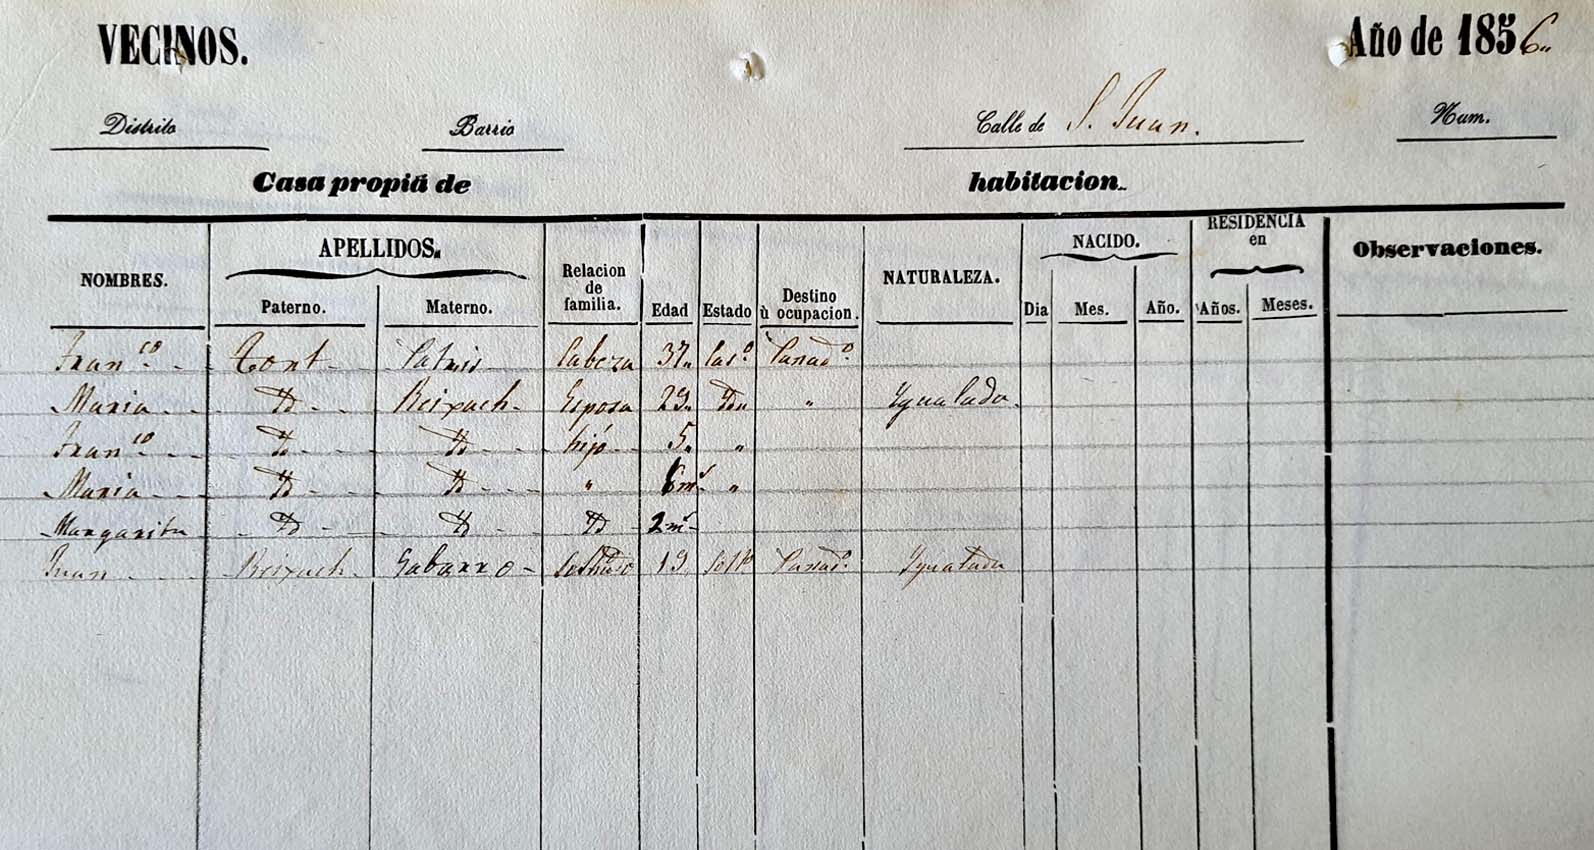 VECINOS. Año de 1856.
Distrito Barrio Calle de S. Juan. Num.
Casa propiá de habitacion.
NOMBRES. APELLIDOS. Paterno. Materno. Relacion de familia. Edad Estado Destino ù ocupacion. NATURALEZA. NACIDO. Dia Mes. Año. RESIDENCIA en Años. Meses. Observaciones.
Fran.co Tort Cabeza 37 Cas.o Panad.o
Maria Id Reixach Esposa 29 Id " Ygualada.
Fran.co Id Id hijo 5 "
Maria Id Id " 6 m.s "
Margarita Id Id Id 2 m.s
Juan Reixach Gabarro 19 Solt.o Panad.o Ygualada